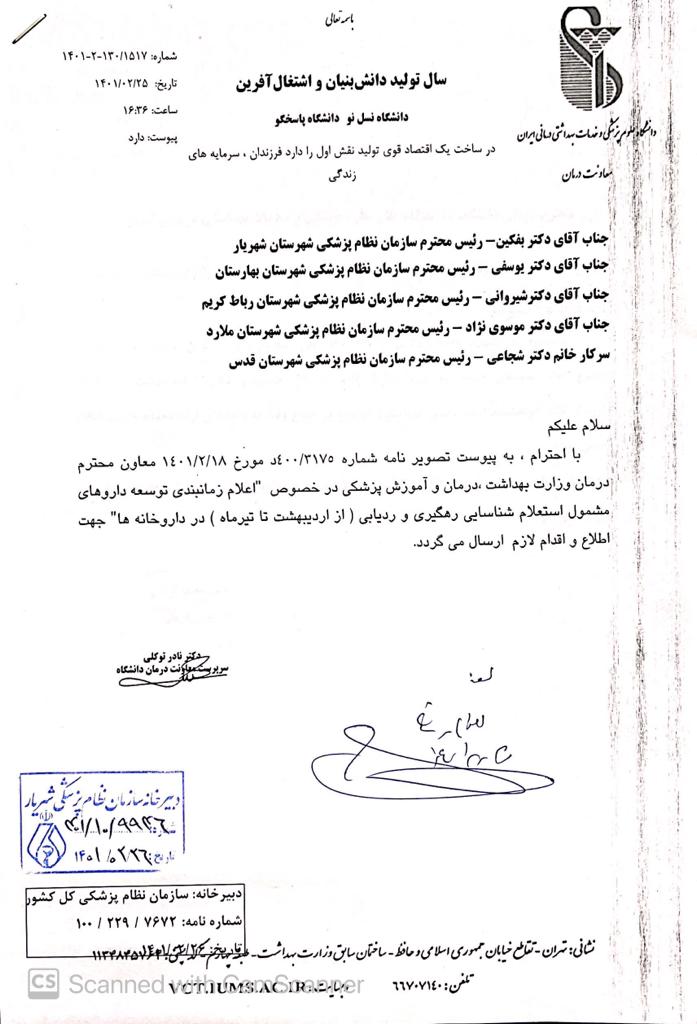 باسمه تعالی
شماره: ۱۴۰۱-۲-۱۳۰/۱۵۱۷
تاریخ: ۱۴۰۱/۰۲/۲۵
ساعت: ۱۶:۳۶
پیوست: دارد
سال تولید دانش‌بنیان و اشتغال‌آفرین
دانشگاه نسل نو دانشگاه پاسخگو
در ساخت یک اقتصاد قوی تولید نقش اول را دارد فرزندان ، سرمایه های
زندگی
دانشگاه علوم پزشکی و خدمات بهداشتی درمانی ایران
معاونت درمان
جناب آقای دکتر بفکین– رئیس محترم سازمان نظام پزشکی شهرستان شهریار
جناب آقای دکتر یوسفی – رئیس محترم سازمان نظام پزشکی شهرستان بهارستان
جناب آقای دکترشیروانی – رئیس محترم سازمان نظام پزشکی شهرستان رباط کریم
جناب آقای دکتر موسوی نژاد – رئیس محترم سازمان نظام پزشکی شهرستان ملارد
سرکار خانم دکتر شجاعی – رئیس محترم سازمان نظام پزشکی شهرستان قدس
سلام علیکم
با احترام ، به پیوست تصویر نامه شماره ۴۰۰/۳۱۷۵د مورخ ۱۴۰۱/۲/۱۸ معاون محترم
درمان وزارت بهداشت ،درمان و آموزش پزشکی در خصوص "اعلام زمانبندی توسعه داروهای
مشمول استعلام شناسایی رهگیری و ردیابی ( از اردیبهشت تا تیرماه ) در داروخانه ها" جهت
اطلاع و اقدام لازم ارسال می گردد.
دکتر نادر توکلی
سرپرست معاونت درمان دانشگاه
دبیرخانه سازمان نظام پزشکی شهریار
شماره:
تاریخ: ۱۴۰۱/۰۲/۲۶
دبیرخانه: سازمان نظام پزشکی کل کشور
شماره نامه: ۷۶۷۲ / ۲۲۹ / ۱۰۰
تاریخ:
نشانی: تهران - تقاطع خیابان جمهوری اسلامی و حافظ - ساختمان سابق وزارت بهداشت -
تلفن: ۶۶۷۰۷۱۴۰ وبسایت: VCT.IUMS.AC.IR
CS Scanned with CamScanner